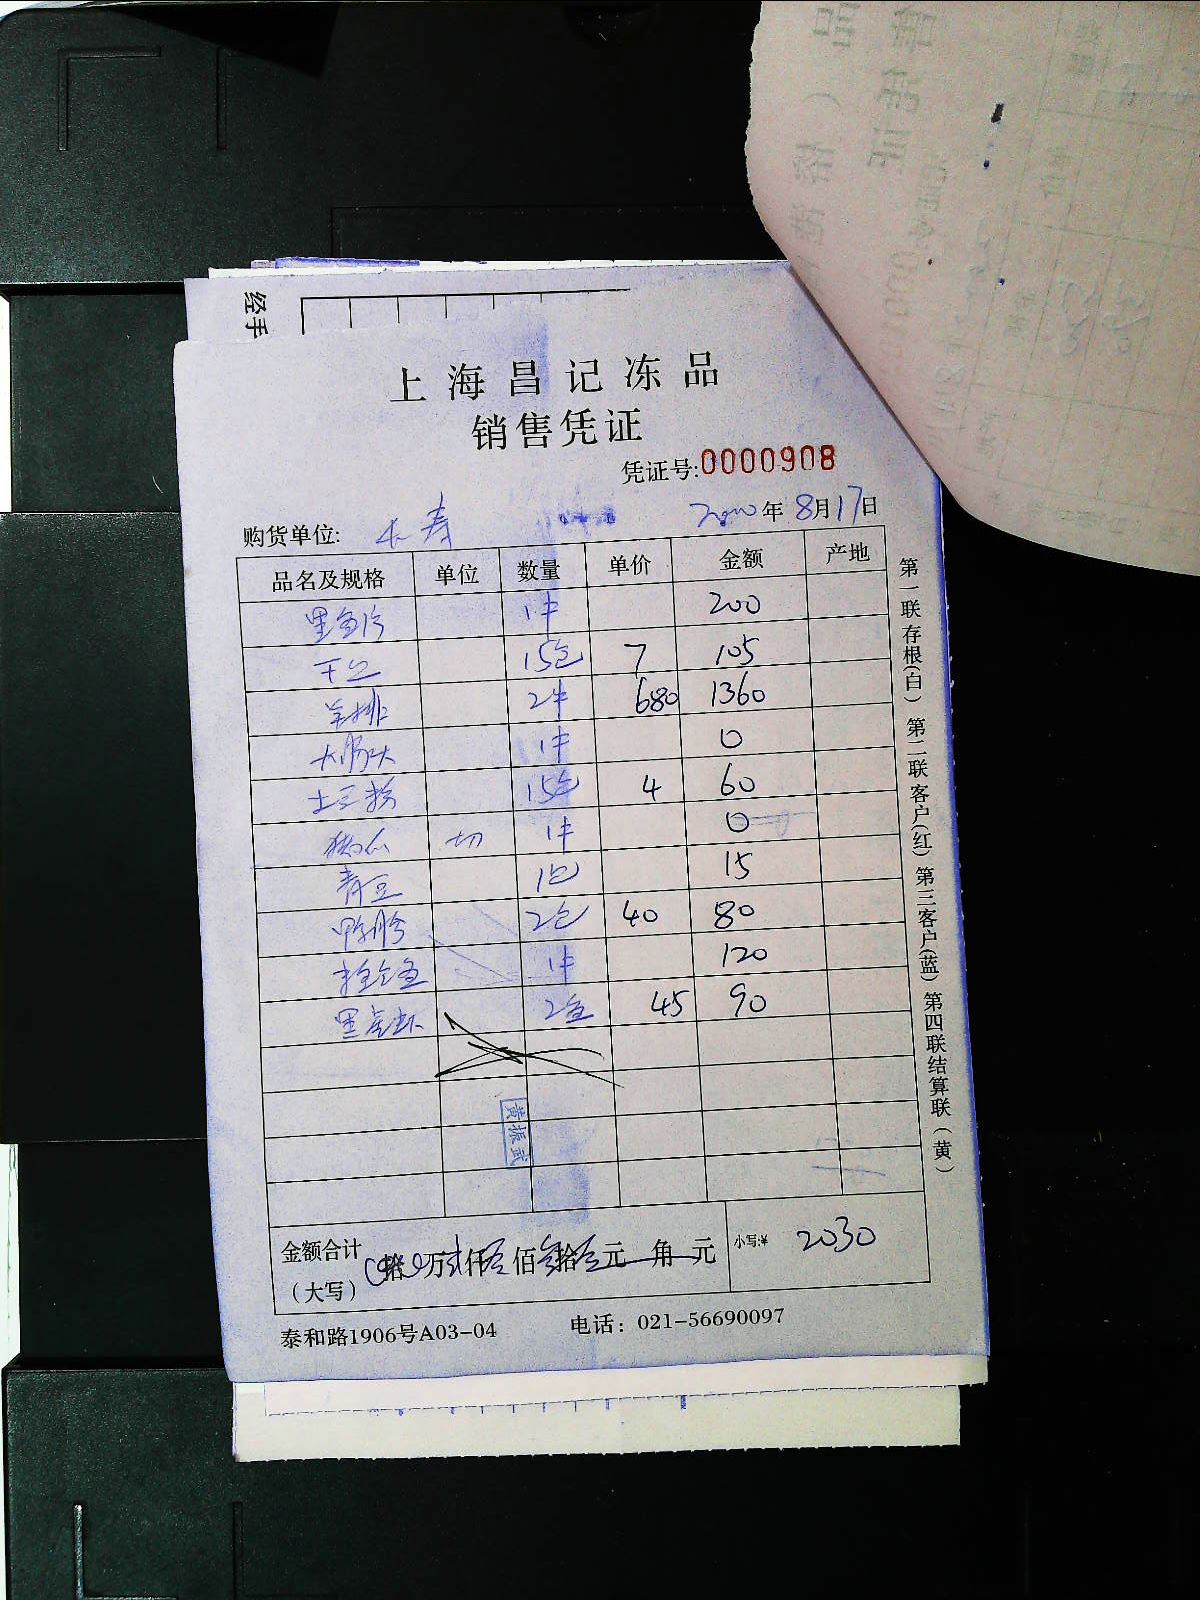 经手
上海昌记冻品
销售凭证
凭证号:0000908
购货单位: 长寿 年 8月17日
品名及规格 单位 数量 单价 金额 产地
黑鱼片 1件 200
干豆 15包 7 105
羊排 2件 680 1360
大肠头 1件 0
土豆粉 15包 4 60
切 1件 0
青豆 1包 15
鸭胗 2包 40 80
1件 120
黑虎虾 2盒 45 90
黄振武
金额合计
(大写) 拾 万 贰 仟 零 佰 叁 拾 零 元 角 元 小写:¥ 2030
泰和路1906号A03-04 电话: 021-56690097
第一联存根(白) 第二联客户(红) 第三客户(蓝) 第四联结算联(黄)